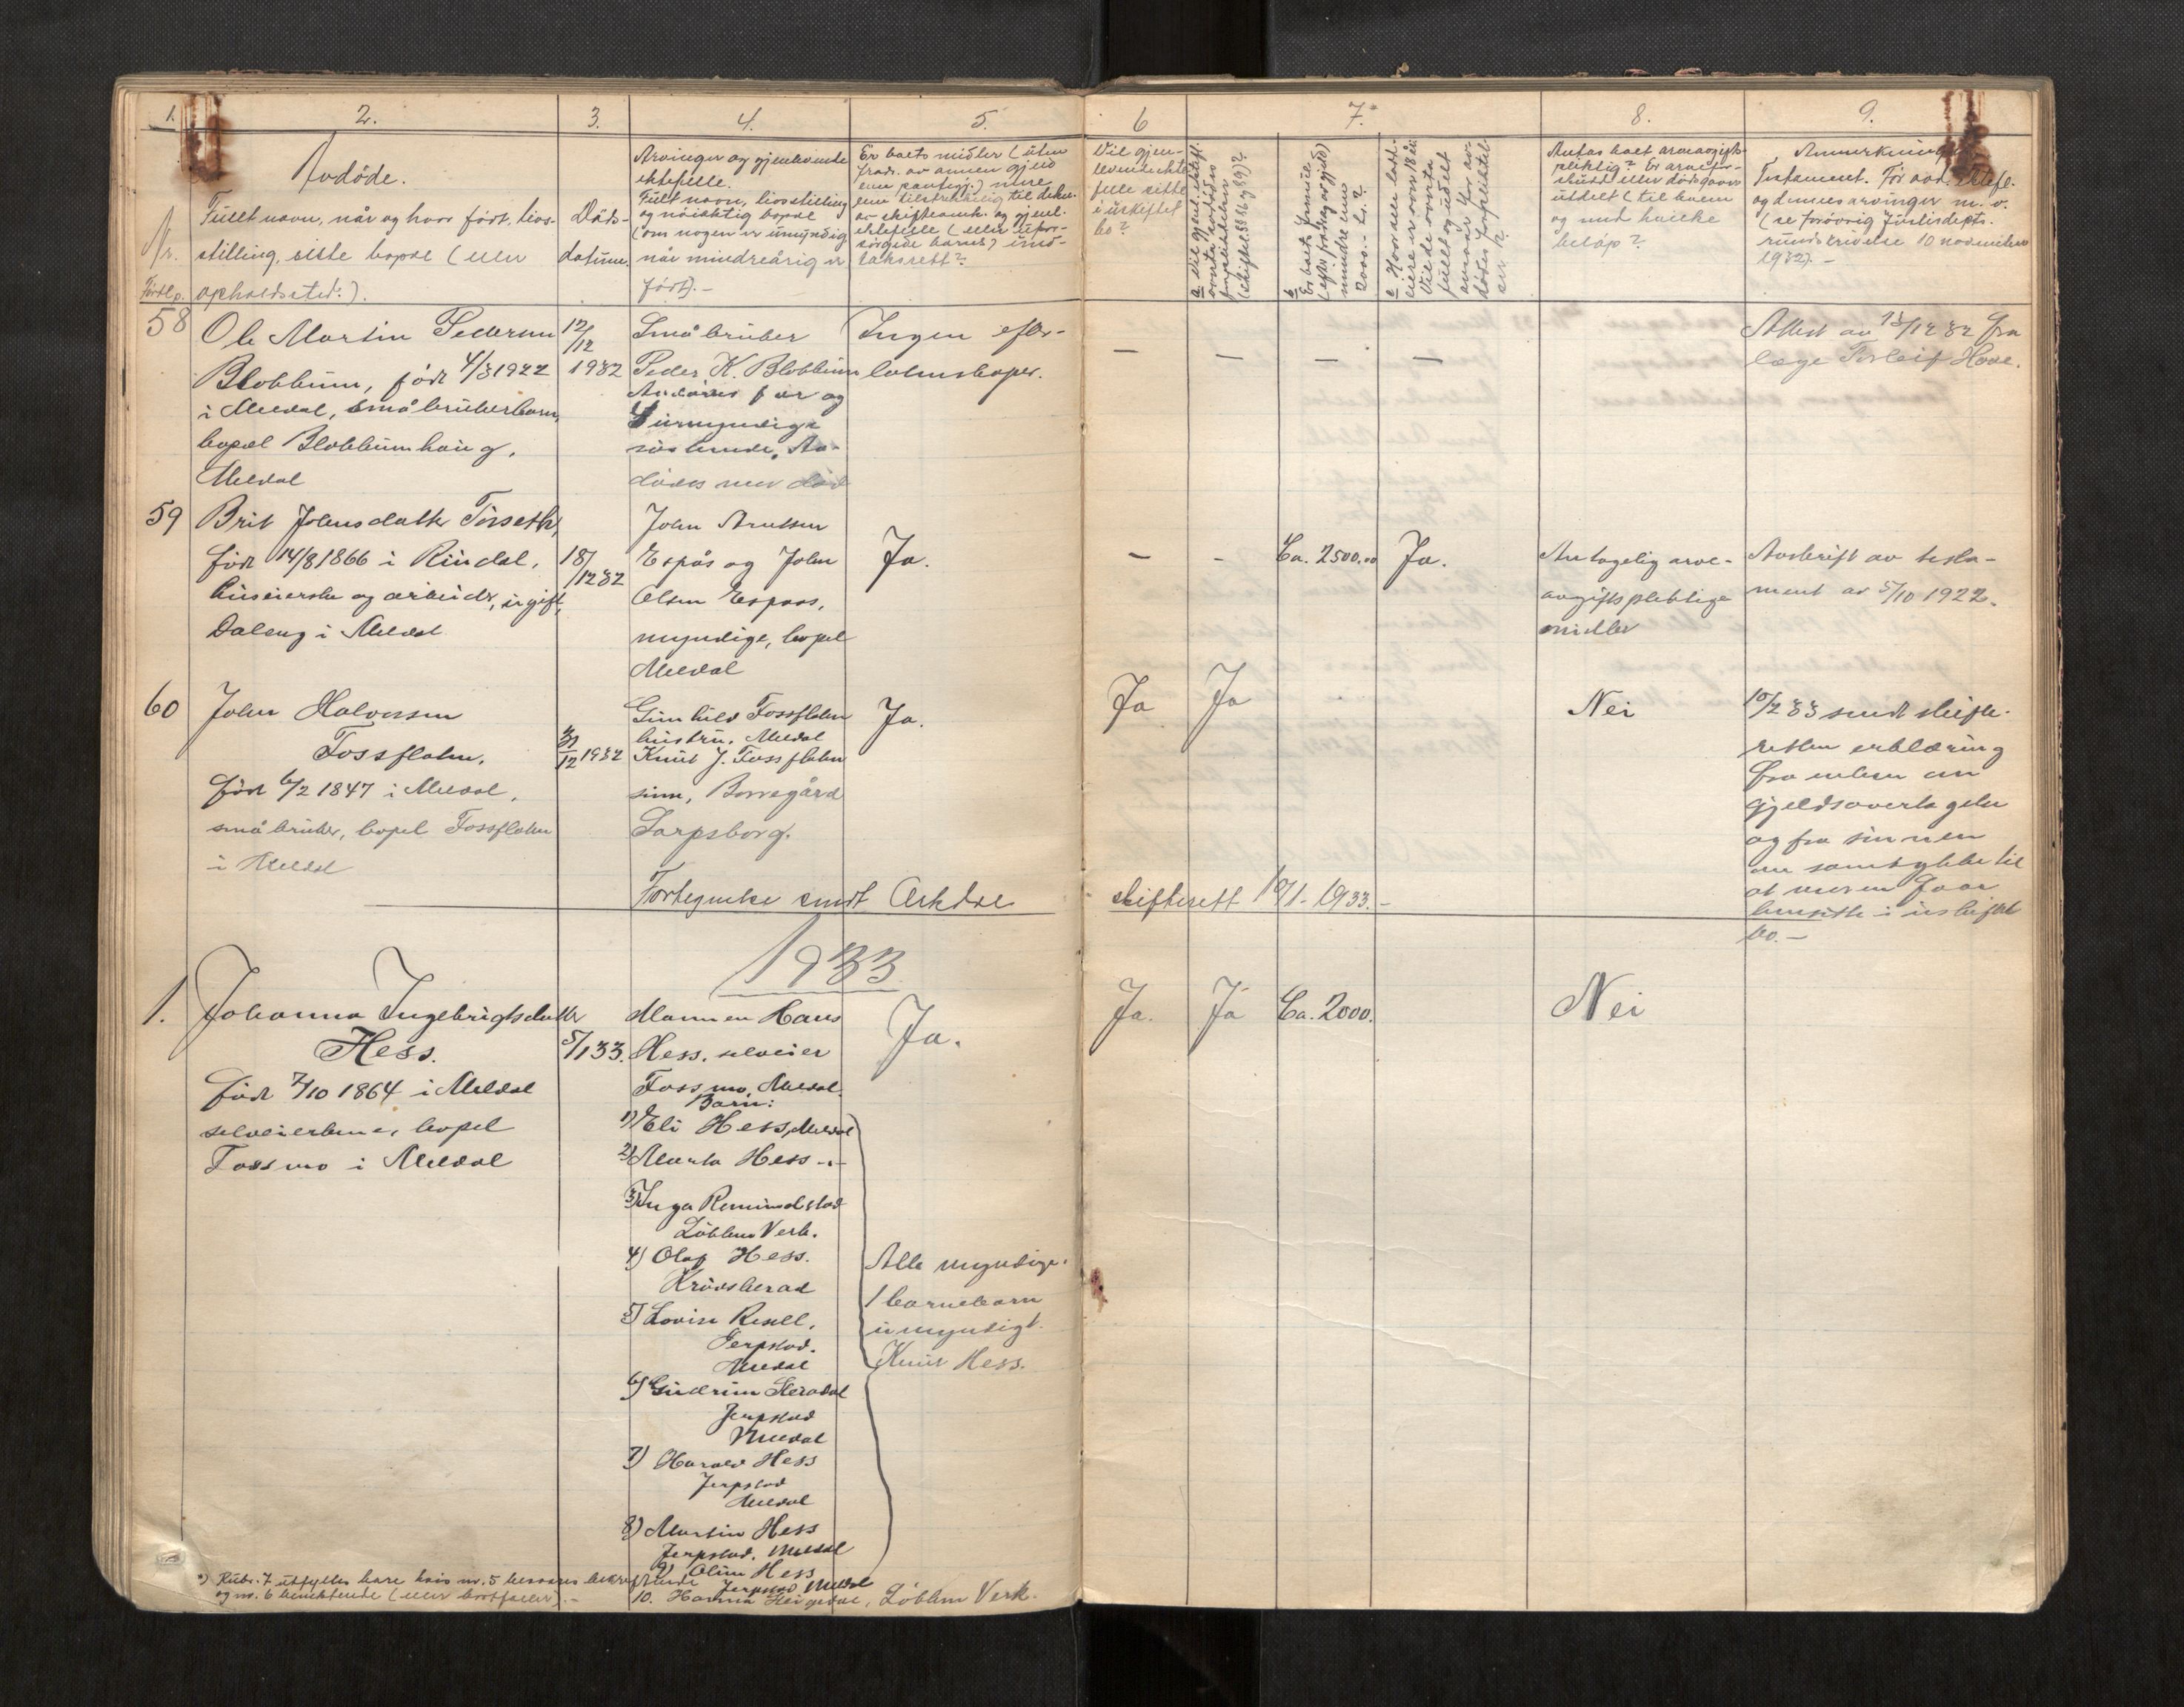 1. 2. 3. 4. 5. 6 7.* 8. 9.
Nr.
Fortlp.
Avdöde.
Fullt navn, når og hvor født, livs-
stilling, siste bopæl (eller
opholdssted.).
Döds-
datum.
Arvinger og gjenlevende
ektefelle.
Fullt navn, livsstilling
og nöiaktig bopæl
(om nogen er umyndig,
når mindreårig er
født).-
Er boets midler (uten
fradr. av annen gjeld
enn pantegj.) mere
enn tilstrekkelig til dekn.
av skifteomk. og gjenl.
ektefelle (eller ufor-
sörgede barns) uind-
taksrett?
Vil gjen-
levende ekte-
felle sitte
i uskiftet
bo?
a. Vil gjenl. ektef.
overta avdödes
forpliktelser
(skiftel. §§ 36 og 89)?
b.
Er boets formue
(efter fradrag av gjeld)
mindre enn
2000.- kr.?
c. Hvor alle lodd-
eiere er over 18 år:
Vil de overta
fullt og udelt
ansvar for av-
dödes forpliktel-
ser?
Antas boet arveavgifts-
pliktig? Er arvefor-
skudd eller dödsgaver
utdelt (til hvem
og med hvilke
beløp?
Anmerkninger
Testament. För avd. ektefl.
og dennes arvinger m. v.
(se forövrig Justisdepts.
rundskrivelse 10 november
1932).-
58
Ole Martin Pedersen
Blokkum, født 4/3 1922
i Meldal, småbrukerbarn,
bopæl Blokkumhaug,
Meldal
12/12
1932
Småbruker
Peder K. Blokkum
Avdödes far og
4 umyndige
söskende. Av-
dödes mor död
Ingen efter-
latenskaper.
— — — —
Attest av 13/12 32 fra
læge Torleif Hove.
59
Brit Johnsdatter Tørseth,
født 14/8 1866 i Rindal,
huseierske og arbeider, ugift,
Daleng i Meldal
18/12 32
John Arntsen
Espås og John
Olsen Espaas,
myndige, bopæl
Meldal
Ja.
— - Ca. 2500.00 Ja.
Antagelig arve-
avgiftspliktige
midler
Avskrift av testa-
ment av 5/10 1922.
60
John Halvorsen
Fossflaten,
født 6/2 1847 i Meldal,
småbruker, bopæl Fossflaten
i Meldal
31/12 1932
Gunhild Fossflaten
hustru, Meldal
Knut J. Fossflaten
sønn, Borregård
Sarpsborg.
Ja.
Ja Ja Nei
10/2 33 sendt skifte-
retten erklæring
fra enken om
gjeldsovertagelse
og fra sønnen
om samtykke til
at moren faar
hensitte i uskiftet
bo.—
Fortegnelse sendt Orkdal skifterett 10/1- 1933.-
1933
1.
Johanna Ingebrigtsdatter
Hess.
født 7/10 1864 i Meldal
selveierkone, bopæl
Fossmo i Meldal
5/1 33.
Mannen Hans
Hess, selveier
Fossmo, Meldal.
Barn:
1) Eli Hess, Meldal
2) Marta Hess -"-
3) Inga Romundstad
Løkken Verk.
4) Olaf Hess.
Krødsherad
5) Lovise Resell,
Jerpstad.
Meldal
6) Gudrun Steradal
Jerpstad
Meldal
7) Harald Hess
Jerpstad
Meldal
8) Martin Hess
Jerpstad. Meldal
9) Oline Hess
Jerpstad Meldal
10. Hanna Heigedal, Løkken Verk.
Ja.
Alle myndige.
1 barnebarn
umyndigt.
Knut Hess.
Ja. Ja Ca. 2000. Nei
*) Rubr. 7 utfylles bare hvis nr. 5 besvares bekreftende
og nr. 6 benektende (eller bortfaller).-